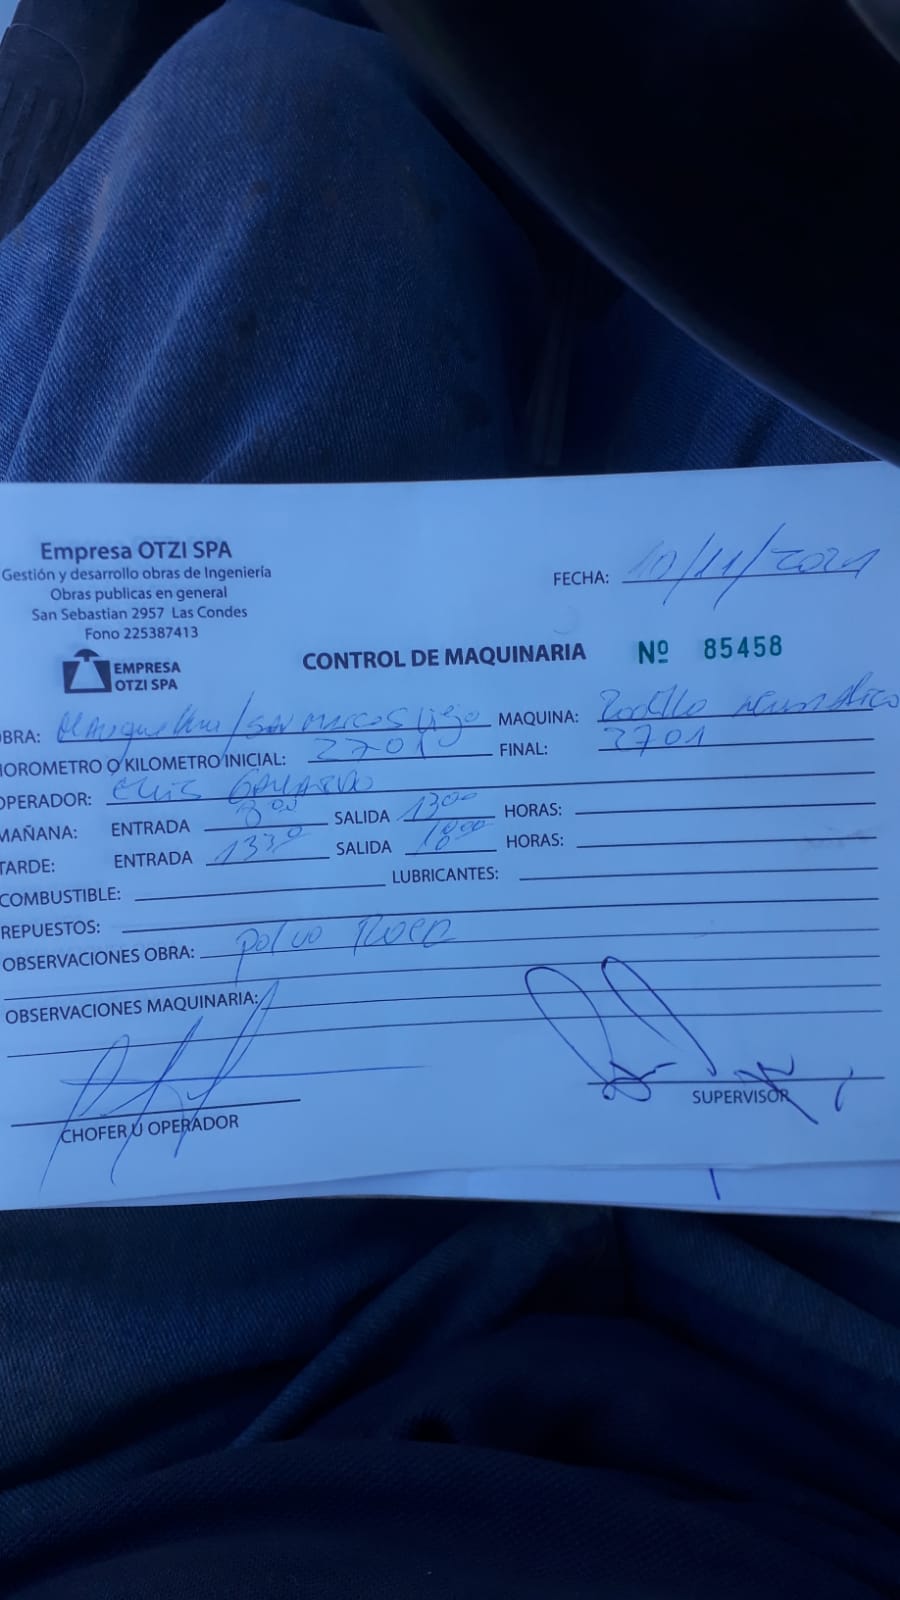 Empresa OTZI SPA
Gestión y desarrollo obras de Ingeniería
Obras publicas en general
San Sebastian 2957 Las Condes
Fono 225387413
EMPRESA
OTZI SPA
FECHA: 10/11/2021
CONTROL DE MAQUINARIA Nº 85458
OBRA: MAQUINA: Rodillo neumatico
HOROMETRO O KILOMETRO INICIAL: 2701 FINAL: 2701
OPERADOR: Luis Gallardo
MAÑANA: ENTRADA 8:00 SALIDA 1300 HORAS:
TARDE: ENTRADA 1330 SALIDA 1800 HORAS:
COMBUSTIBLE: LUBRICANTES:
REPUESTOS:
OBSERVACIONES OBRA: polvo Roca
OBSERVACIONES MAQUINARIA:
CHOFER U OPERADOR SUPERVISOR